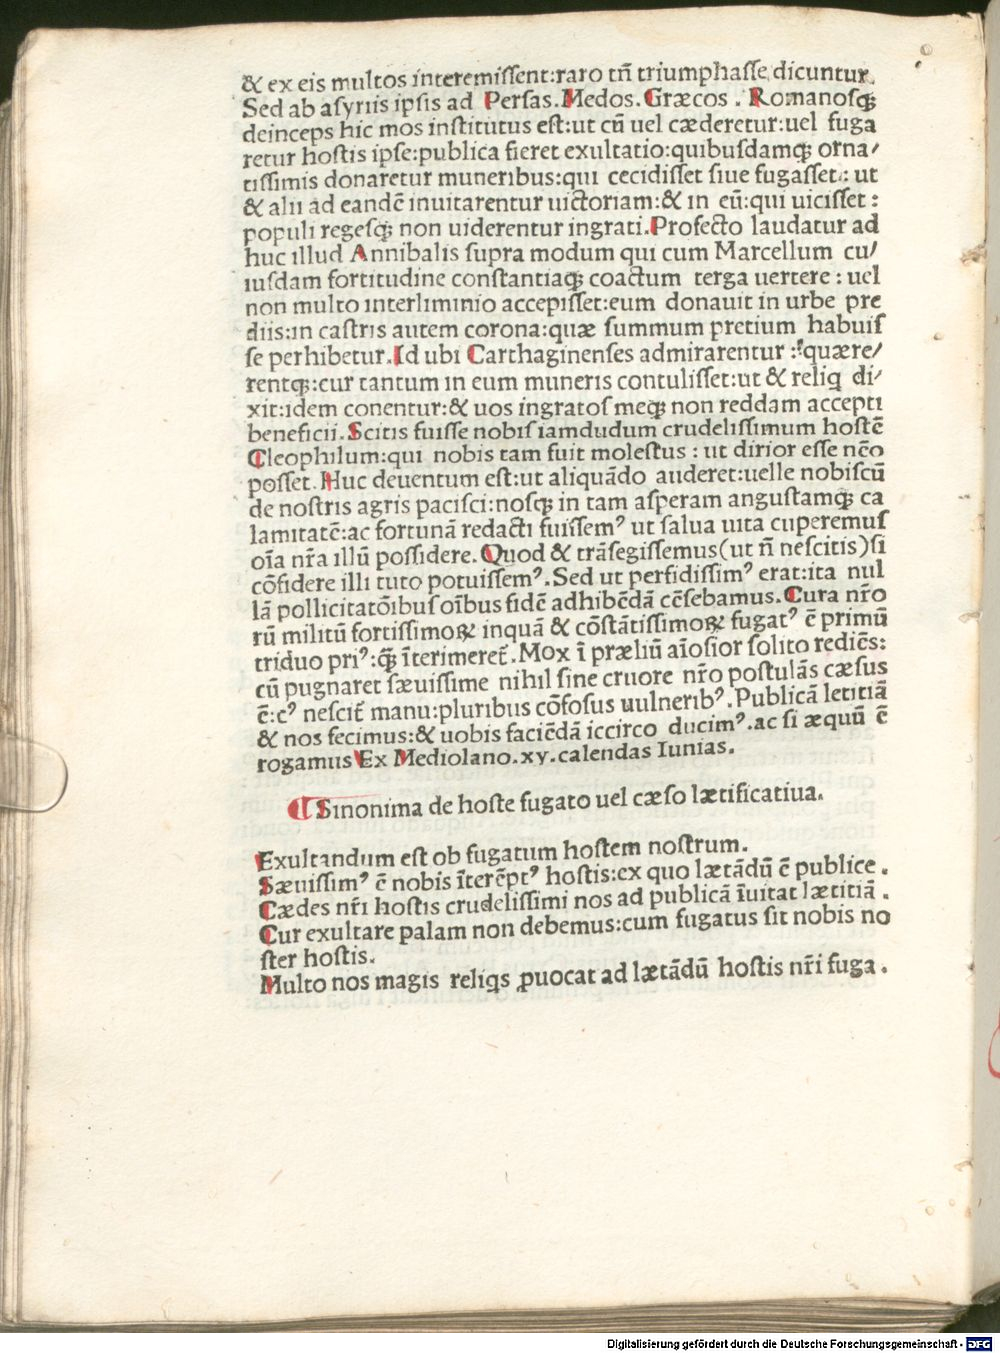 & ex eis multos interemissent:raro tn̄ triumphasse dicuntur.
Sed ab asyriis ipsis ad Persas.Medos.Græcos.Romanosqꝫ
deinceps hic mos institutus est:ut cū uel cæderetur:uel fuga
retur hostis ipse:publica fieret exultatio:quibusdamqꝫ orna/
tissimis donaretur muneribus:qui cecidisset siue fugasset: ut
& alii ad eandē inuitarentur uictoriam:& in eū:qui uicisset:
populi regesqꝫ non uiderentur ingrati.Profecto laudatur ad
huc illud Annibalis supra modum qui cum Marcellum cu/
iusdam fortitudine constantiaqꝫ coactum terga uertere: uel
non multo interliminio accepisset:eum donauit in urbe pre
diis:in castris autem corona:quæ summum pretium habuis
se perhibetur.Id ubi Carthaginenses admirarentur :quære/
rentqꝫ:cur tantum in eum muneris contulisset:ut & reliq di/
xit:idem conentur:& uos ingratos meqꝫ non reddam accepti
beneficii.Scitis fuisse nobis iamdudum crudelissimum hostē
Cleophilum:qui nobis tam fuit molestus: ut dirior esse nēo
posset.Huc deuentum est:ut aliquādo auderet:uelle nobiscū
de nostris agris pacisci:nosqꝫ in tam asperam angustamqꝫ ca
lamitatē:ac fortunā redacti fuissemꝰ ut salua uita cuperemus
oīa nr̄a illū possidere.Quod & trāsegissemus(ut n̄ nescitis)si
cōfidere illi tuto potuissemꝰ.Sed ut perfidissimꝰ erat:ita nul
lā pollicitatōibus oībus fidē adhibēdā cēsebamus.Cura nr̄o
rū militū fortissimoꝝ inquā & cōstātissimoꝝ fugatꝰ ē primū
triduo priꝰ:qꝫ̄ īterimeret̄.Mox ī præliū aīosior solito rediēs:
cū pugnaret sæuissime nihil sine cruore nr̄o postulās cæsus
ē:cꝰ nescit̄ manu:pluribus cōfosus uulneribꝰ.Publicā letitiā
& nos fecimus:& uobis faciēdā iccirco ducimꝰ.ac si æquū ē
rogamus Ex Mediolano.xy.calendas Iunias.
¶ Sinonima de hoste fugato uel cæso lætificatiua.
Exultandum est ob fugatum hostem nostrum.
Sæuissimꝰ ē nobis īterēptꝰ hostis:ex quo lætādū ē publice.
Cædes nr̄i hostis crudelissimi nos ad publicā īuitat lætitiā.
Cur exultare palam non debemus:cum fugatus sit nobis no
ster hostis.
Multo nos magis reliqs ꝓuocat ad lætādū hostis nr̄i fuga.
Digitalisierung gefördert durch die Deutsche Forschungsgemeinschaft - DFG